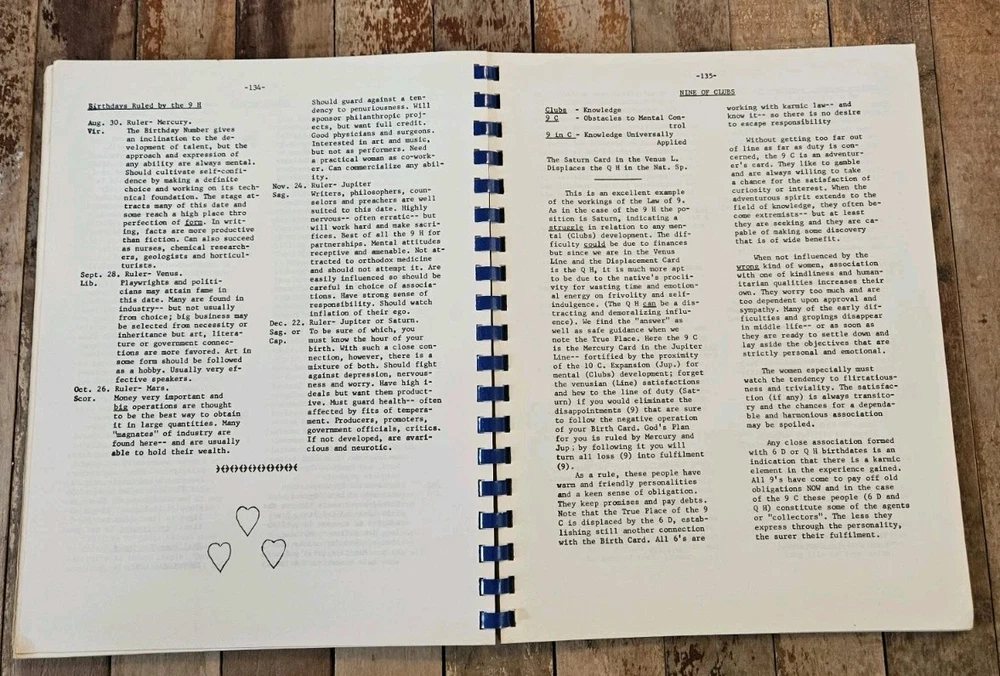 -134-
Birthdays Ruled by the 9 H
Aug. 30. Ruler- Mercury.
Vir. The Birthday Number gives
an inclination to the de-
velopment of talent, but the
approach and expression of
any ability are always mental.
Should cultivate self-confi-
dence by making a definite
choice and working on its tech-
nical foundation. The stage at-
tracts many of this date and
some reach a high place thro
perfection of form. In writ-
ing, facts are more productive
than fiction. Can also succeed
as nurses, chemical research-
ers, geologists and horticul-
turists.
Sept. 28. Ruler- Venus.
Lib. Playwrights and politi-
cians may attain fame in
this date. Many are found in
industry-- but not usually
from choice; big business may
be selected from necessity or
inheritance but art, litera-
ture or government connec-
tions are more favored. Art in
some form should be followed
as a hobby. Usually very ef-
fective speakers.
Oct. 26. Ruler- Mars.
Scor. Money very important and
big operations are thought
to be the best way to obtain
it in large quantities. Many
"magnates" of industry are
found here-- and are usually
able to hold their wealth.
Should guard against a ten-
dency to penuriousness. Will
sponsor philanthropic proj-
ects, but want full credit.
Good physicians and surgeons.
Interested in art and music,
but not as performers. Need
a practical woman as co-work-
er. Can commercialize any abil-
ity.
Nov. 24. Ruler- Jupiter
Sag. Writers, philosophers, coun-
selors and preachers are well
suited to this date. Highly
nervous-- often erratic-- but
will work hard and make sacri-
fices. Best of all the 9 H for
partnerships. Mental attitudes
receptive and amenable. Not at-
tracted to orthodox medicine
and should not attempt it. Are
easily influenced so should be
careful in choice of associa-
tions. Have strong sense of
responsibility. Should watch
inflation of their ego.
Dec. 22. Ruler- Jupiter or Saturn.
Sag. or To be sure of which, you
Cap. must know the hour of your
birth. With such a close con-
nection, however, there is a
mixture of both. Should fight
against depression, nervous-
ness and worry. Have high i-
deals but want them product-
ive. Must guard health-- often
affected by fits of tempera-
ment. Producers, promoters,
government officials, critics.
If not developed, are avari-
cious and neurotic.
-135-
NINE OF CLUBS
Clubs - Knowledge
9 C - Obstacles to Mental Con-
trol
9 in C - Knowledge Universally
Applied
The Saturn Card in the Venus L.
Displaces the Q H in the Nat. Sp.
This is an excellent example
of the workings of the Law of 9.
As in the case of the 9 H the po-
sition is Saturn, indicating a
struggle in relation to any men-
tal (Clubs) development. The dif-
ficulty could be due to finances
but since we are in the Venus
Line and the Displacement Card
is the Q H, it is much more apt
to be due to the native's procli-
vity for wasting time and emotion-
al energy on frivolity and self-
indulgence. (The Q H can be a dis-
tracting and demoralizing influ-
ence). We find the "answer" as
well as safe guidance when we
note the True Place. Here the 9 C
is the Mercury Card in the Jupiter
Line-- fortified by the proximity
of the 10 C. Expansion (Jup.) for
mental (Clubs) development; forget
the venusian (Line) satisfactions
and hew to the line of duty (Sat-
urn) if you would eliminate the
disappointments (9) that are sure
to follow the negative operation
of your Birth Card. God's Plan
for you is ruled by Mercury and
Jup; by following it you will
turn all loss (9) into fulfilment
(9).
As a rule, these people have
warm and friendly personalities
and a keen sense of obligation.
They keep promises and pay debts.
Note that the True Place of the 9
C is displaced by the 6 D, estab-
lishing still another connection
with the Birth Card. All 6's are
working with karmic law-- and
know it-- so there is no desire
to escape responsibility
Without getting too far out
of line as far as duty is con-
cerned, the 9 C is an adventur-
er's card. They like to gamble
and are always willing to take
a chance for the satisfaction of
curiosity or interest. When the
adventurous spirit extends to the
field of knowledge, they often be-
come extremists-- but at least
they are seeking and they are ca-
pable of making some discovery
that is of wide benefit.
When not influenced by the
wrong kind of women, association
with one of kindliness and human-
itarian qualities increases their
own. They worry too much and are
too dependent upon approval and
sympathy. Many of the early dif-
ficulties and gropings disappear
in middle life-- or as soon as
they are ready to settle down and
lay aside the objectives that are
strictly personal and emotional.
The women especially must
watch the tendency to flirtatious-
ness and triviality. The satisfac-
tion (if any) is always transito-
ry and the chances for a dependa-
ble and harmonious association
may be spoiled.
Any close association formed
with 6 D or Q H birthdates is an
indication that there is a karmic
element in the experience gained.
All 9's have come to pay off old
obligations NOW and in the case
of the 9 C these people (6 D and
Q H) constitute some of the agents
or "collectors". The less they
express through the personality,
the surer their fulfilment.